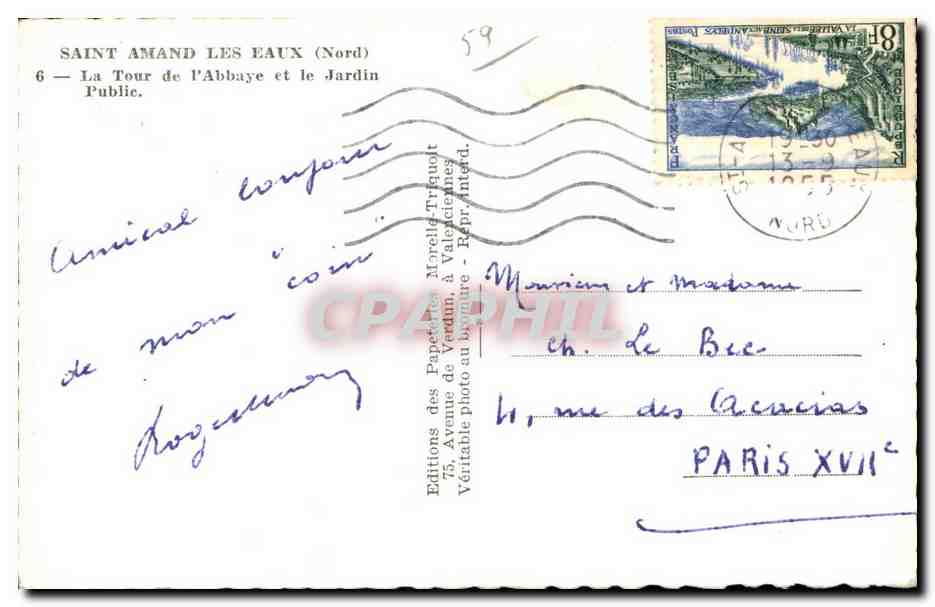 SAINT AMAND LES EAUX (Nord)
6 — La Tour de l'Abbaye et le Jardin
Public.
59
Amical bonjour
de mon "coin"
Editions des Papeteries Morelle-Triquoit
75, Avenue de Verdun, à Valenciennes
Véritable photo au bromure - Repr. interd.
8F
LA VALLÉE DE LA SEINE AUX ANDELYS
POSTES
REPUBLIQUE FRANÇAISE
19-30
13-9
1955
NORD
Monsieur et Madame
Ch. Le Bec
4, rue des Acacias
PARIS XVIIe
CPAPHIL